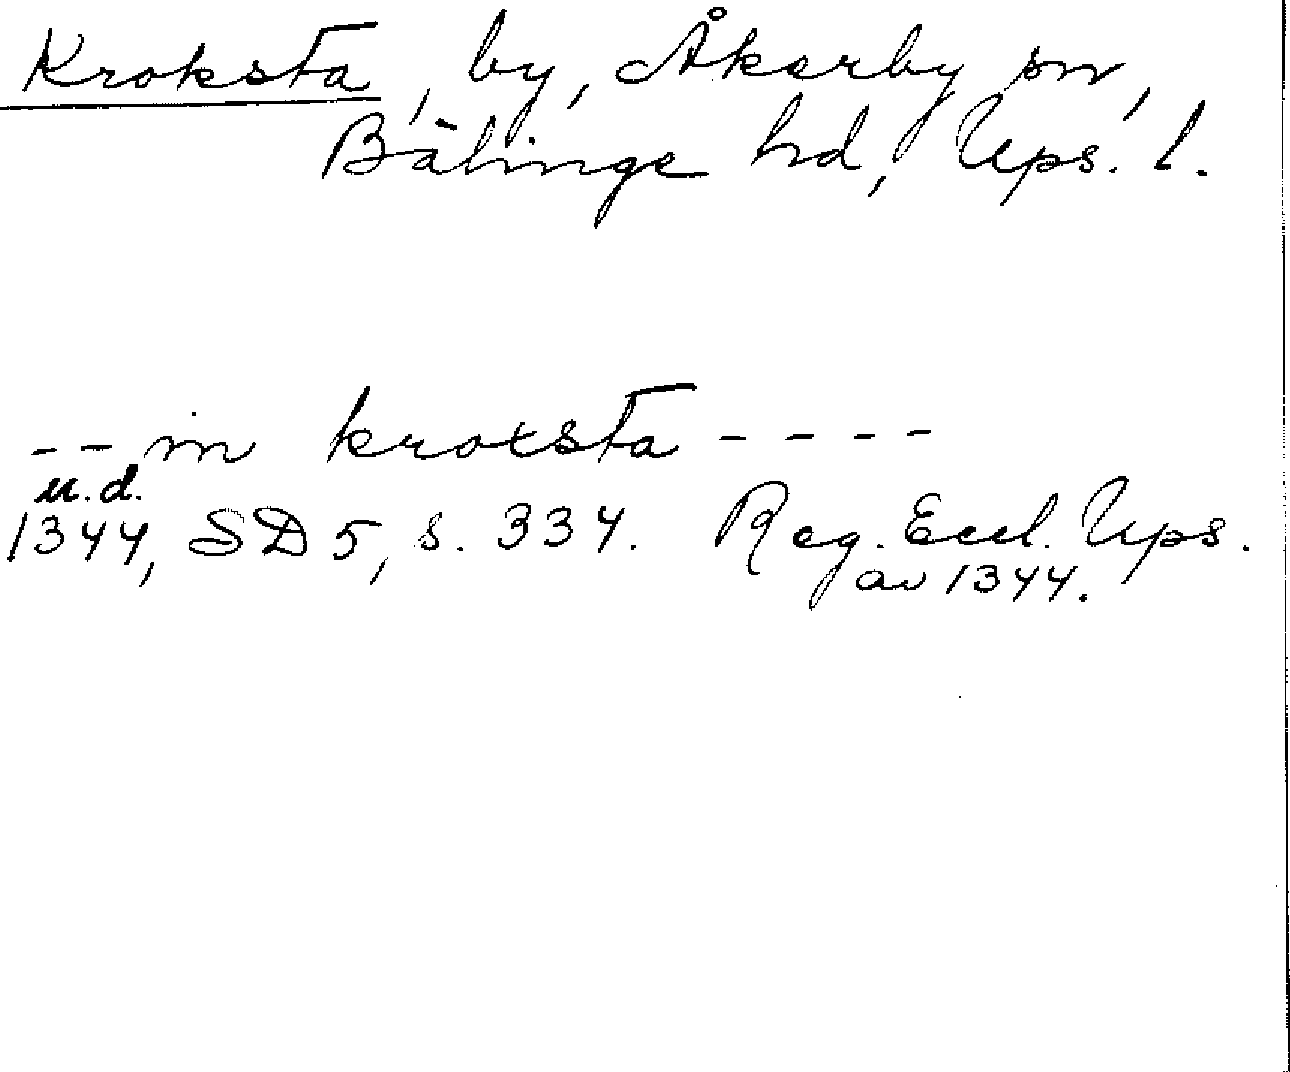 Kroksta, by, Åkerby sn,
Bälinge hd, Ups. l.
-- in kroxsta ----
u.d.
1344, SD 5, s. 334. Reg. Eccl. Ups.
av 1344.